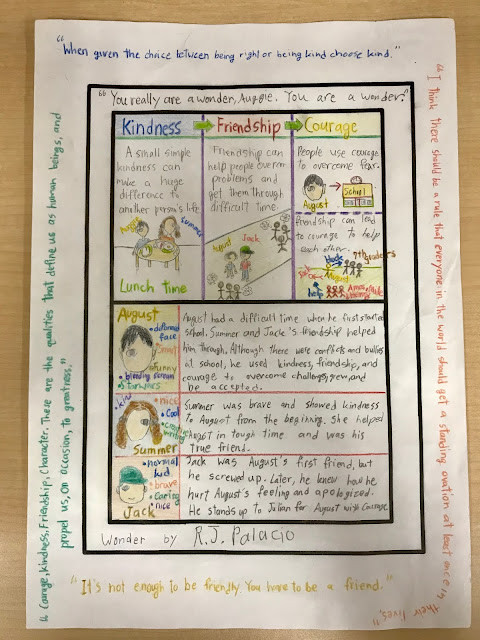 "When given the choice between being right or being kind choose kind."
"I think there should be a rule that everyone in the world should get a standing ovation at least once in their lives."
"Courage, kindness, Friendship, Character. These are the qualities that define us as human beings, and
propel us, on occasion, to greatness."
"You really are a wonder, Auggie. You are a wonder."
Kindness
Friendship
Courage
A small simple
kindness can
make a huge
difference to
another person's life
August
Summer
Lunch time
Friendship can
help people overcom
problems and
get them through
difficult time.
August
Jack
People use courage
to overcome fear.
August
School
friendship can lead
to courage to help
each other.
7th graders
Jack
August
help
August
•deformed
face
•smart
•funny
•bleeding scream
•starwars
August had a difficult time when he first started
school. Summer and Jack's friendship helped
him through. Although there were conflicts and bullies
at school, he used kindness, friendship, and
courage to overcome challenges, grew, and
be accepted.
•kind
•nice
•cool
•creative
writing
Summer
Summer was brave and showed kindness
to August from the beginning. She helped
in tough time and was his
true friend.
•normal
kid
•brave
•caring
•nice
Jack
Jack was August's first friend, but
he screwed up. Later, he knew how he
hurt August's feeling and apologized.
He stands up to Julian for August with courage.
Wonder by R.J. Palacio
"It's not enough to be friendly. You have to be a friend."